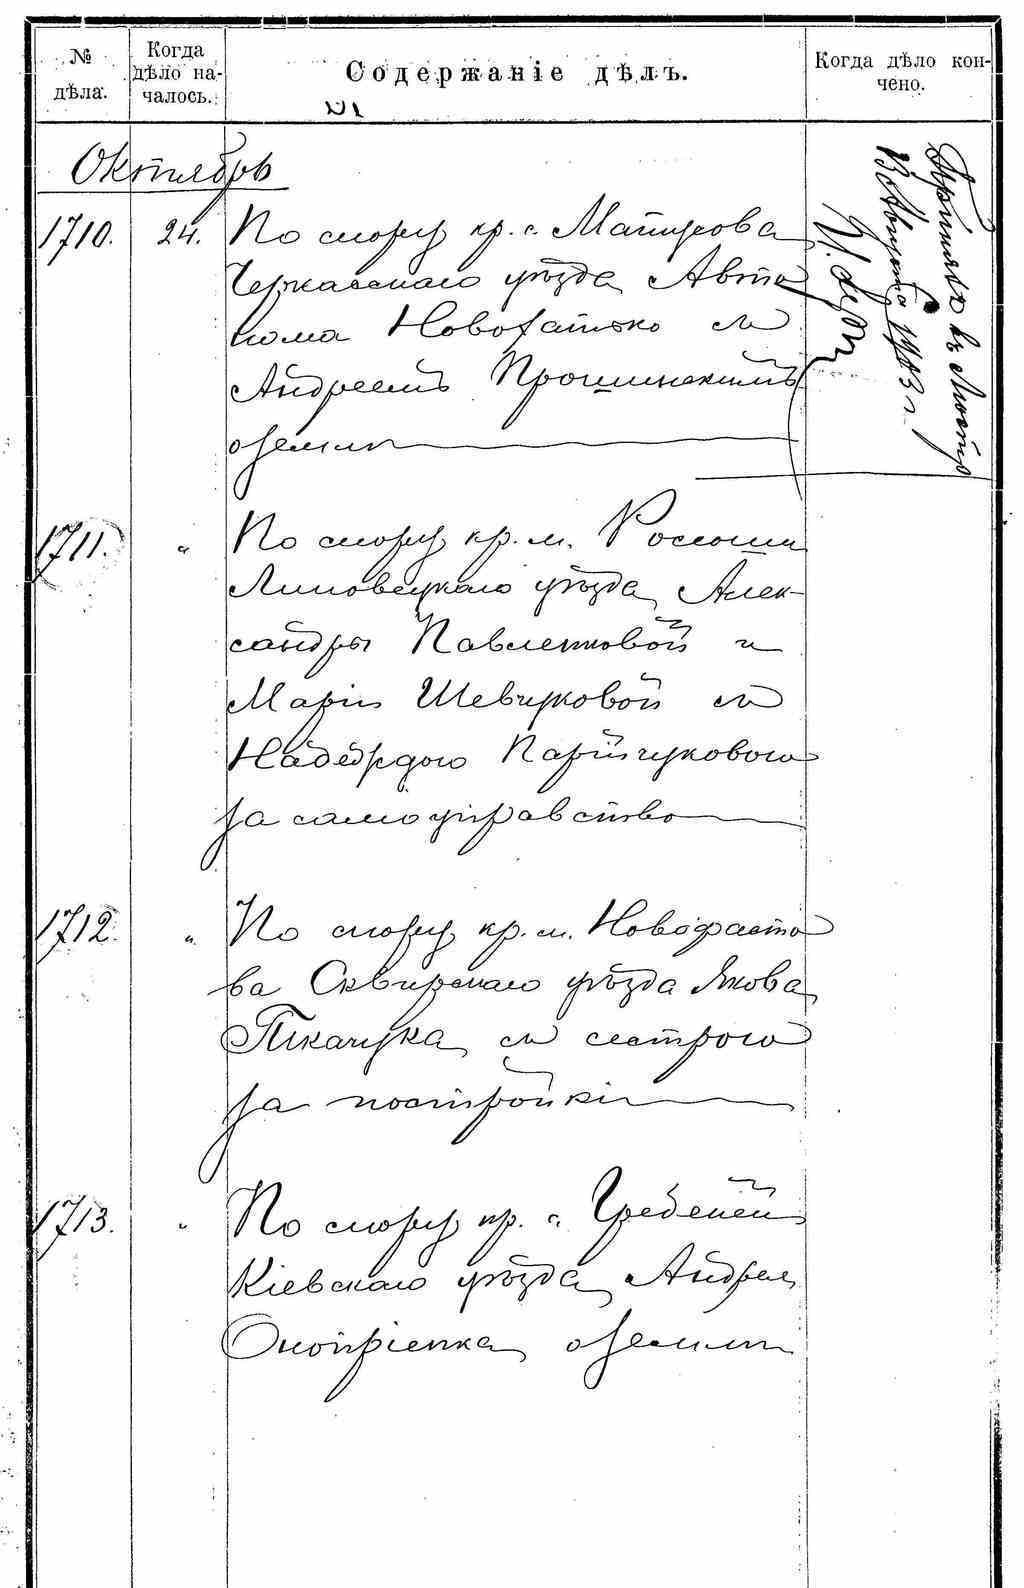 № дѣла.
Когда дѣло на-
чалось.
Содержаніе дѣлъ.
Когда дѣло кон-
чено.
Октябрь
1710. 24. По спору кр. с. Матусова
Черкасскаго уѣзда Авто
нома Новохатько съ
Андреемъ Прошинскимъ
о земли
1711. " По спору кр. м. Россоши
Липовецкаго уѣзда Алек-
сандры Павленковой и
Маріи Шевчуковой съ
Надеждою Парѣйчуковою
за самоуправство
1712. " По спору кр. м. Новофасто
ва Сквирскаго уѣзда Якова
Ткачука съ сестрою
за постройки
1713. " По спору кр. с. Гребеней
Кіевскаго уѣзда Андрея
Онопріенка о земли